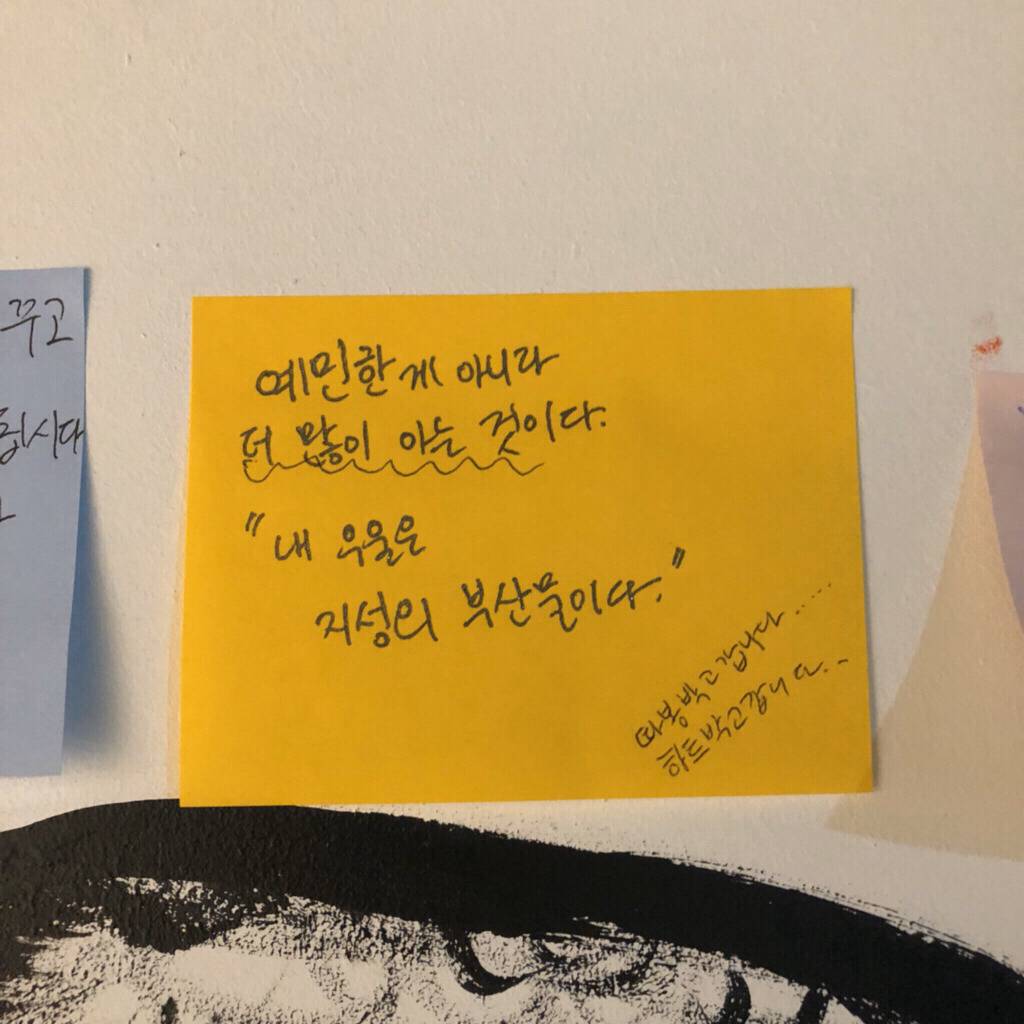 꾸고
립시다
예민한 게 아니라
더 많이 아는 것이다.
"내 우울은
지성의 부산물이다."
따봉박고갑니다.....
하트박고갑니다..